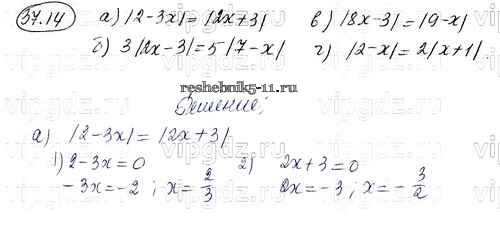 37.14 а) |2-3x|=|2x+3| в) |8x-3|=|9-x|
б) 3|2x-3|=5|7-x| г) |2-x|=2|x+1|
reshebnik5-11.ru
Решение;
а) |2-3x|=|2x+3|
1) 2-3x=0 2) 2x+3=0
-3x=-2; x=2/3 2x=-3; x=-3/2